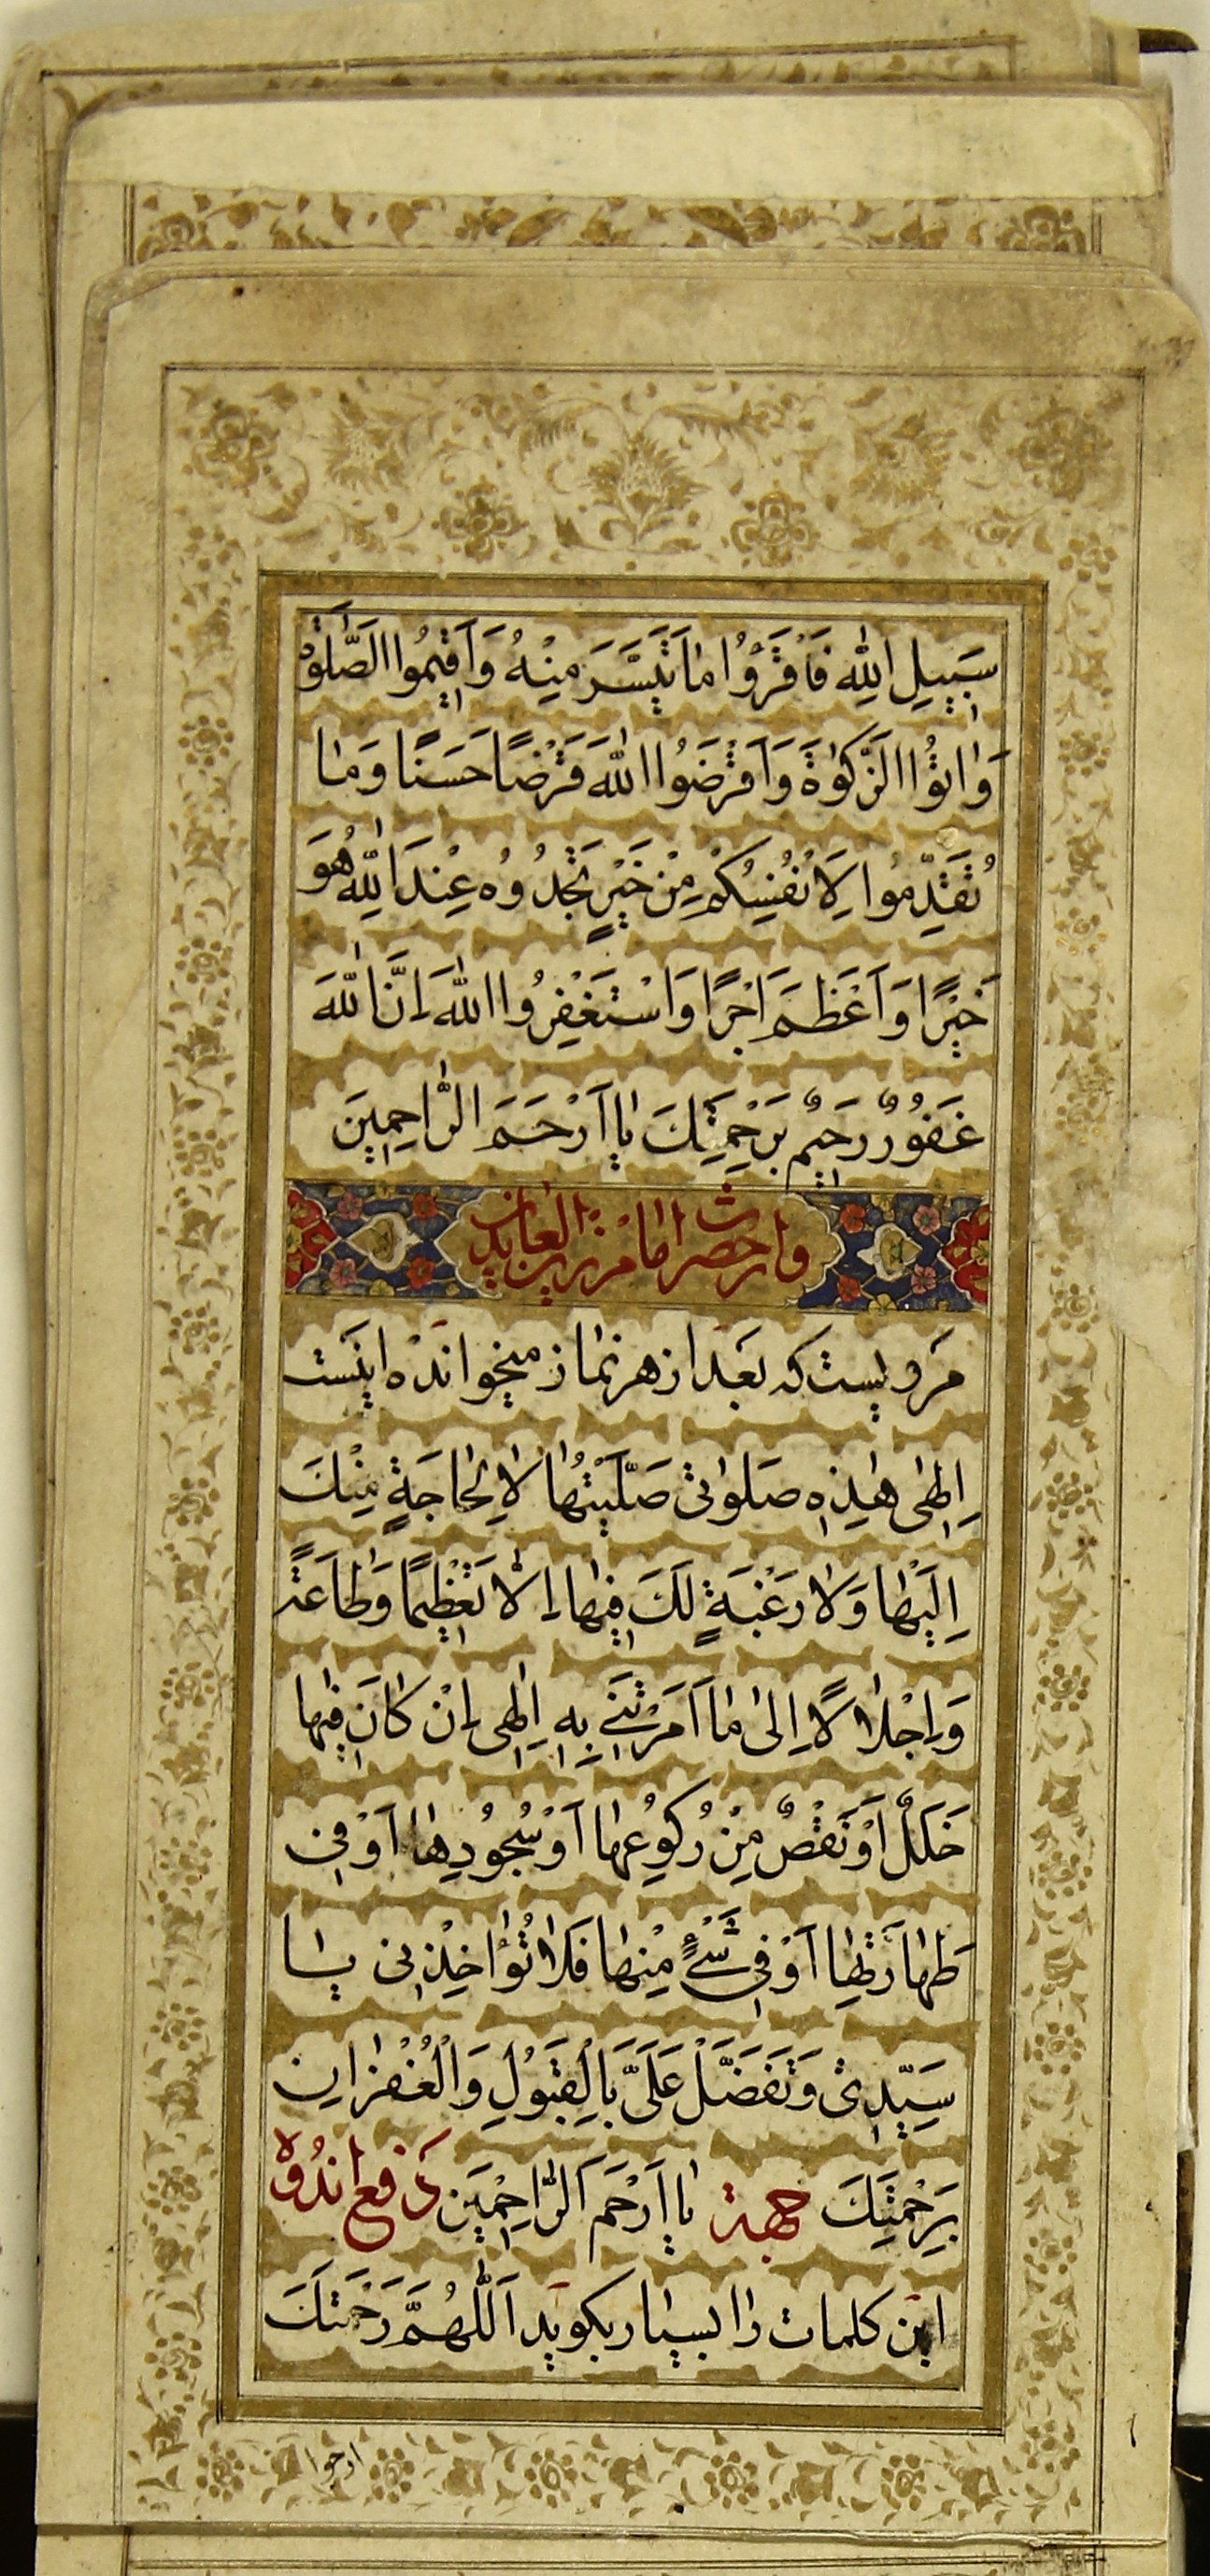 سَبِيلِ اللهِ فَاقْرَؤُا مَا تَيَسَّرَ مِنْهُ وَاَقِيمُوا الصَّلٰوةَ
وَاٰتُوُا الزَّكٰوةَ وَاَقْرِضُوُا اللهَ قَرْضًا حَسَنًا وَمَا
تُقَدِّمُوا لِاَنْفُسِكُمْ مِنْ خَيْرٍ تَجِدُوُهُ عِنْدَ اللهِ هُوَ
خَيْرًا وَاَعْظَمَ اَجْرًا وَاسْتَغْفِرُوا اللهَ اِنَّ اللهَ
غَفُورٌ رَحِيمٌ بِرَحْمَتِكَ يَا اَرْحَمَ الرَّاحِمِينَ
واز حضرت امام زين العابدين
مرويست كه بعد از هر نماز ميخوانده اينست
اِلٰهِى هٰذِهِ صَلوٰتى صَلَّيْتُهَا لَا لِحَاجَةٍ مِنْكَ
اِلَيْهَا وَلَا رَغْبَةٍ لَكَ فِيهَا اِلَّا تَعْظِيمًا وَطَاعَةً
وَاِجْلَالًا اِلىٰ مَا اَمَرْتَنِى بِهِ اِلٰهِى اِنْ كَانَ فِيهَا
خَلَلٌ اَوْ نَقْصٌ مِنْ رُكُوعِهَا اَوْ سُجُودِهَا اَوْ فِى
طَهَارَتِهَا اَوْ فِى شَىْءٍ مِنْهَا فَلَا تُؤَاخِذْنِى يَا
سَيِّدِى وَتَفَضَّلْ عَلَىَّ بِالْقَبُولِ وَالْغُفْرَانِ
بِرَحْمَتِكَ جهة يَا اَرْحَمَ الرَّاحِمِينَ دفع اندوه
اين كلمات را بسيار بكويد اَللّٰهُمَّ رَحْمَتَكَ
ارجوا